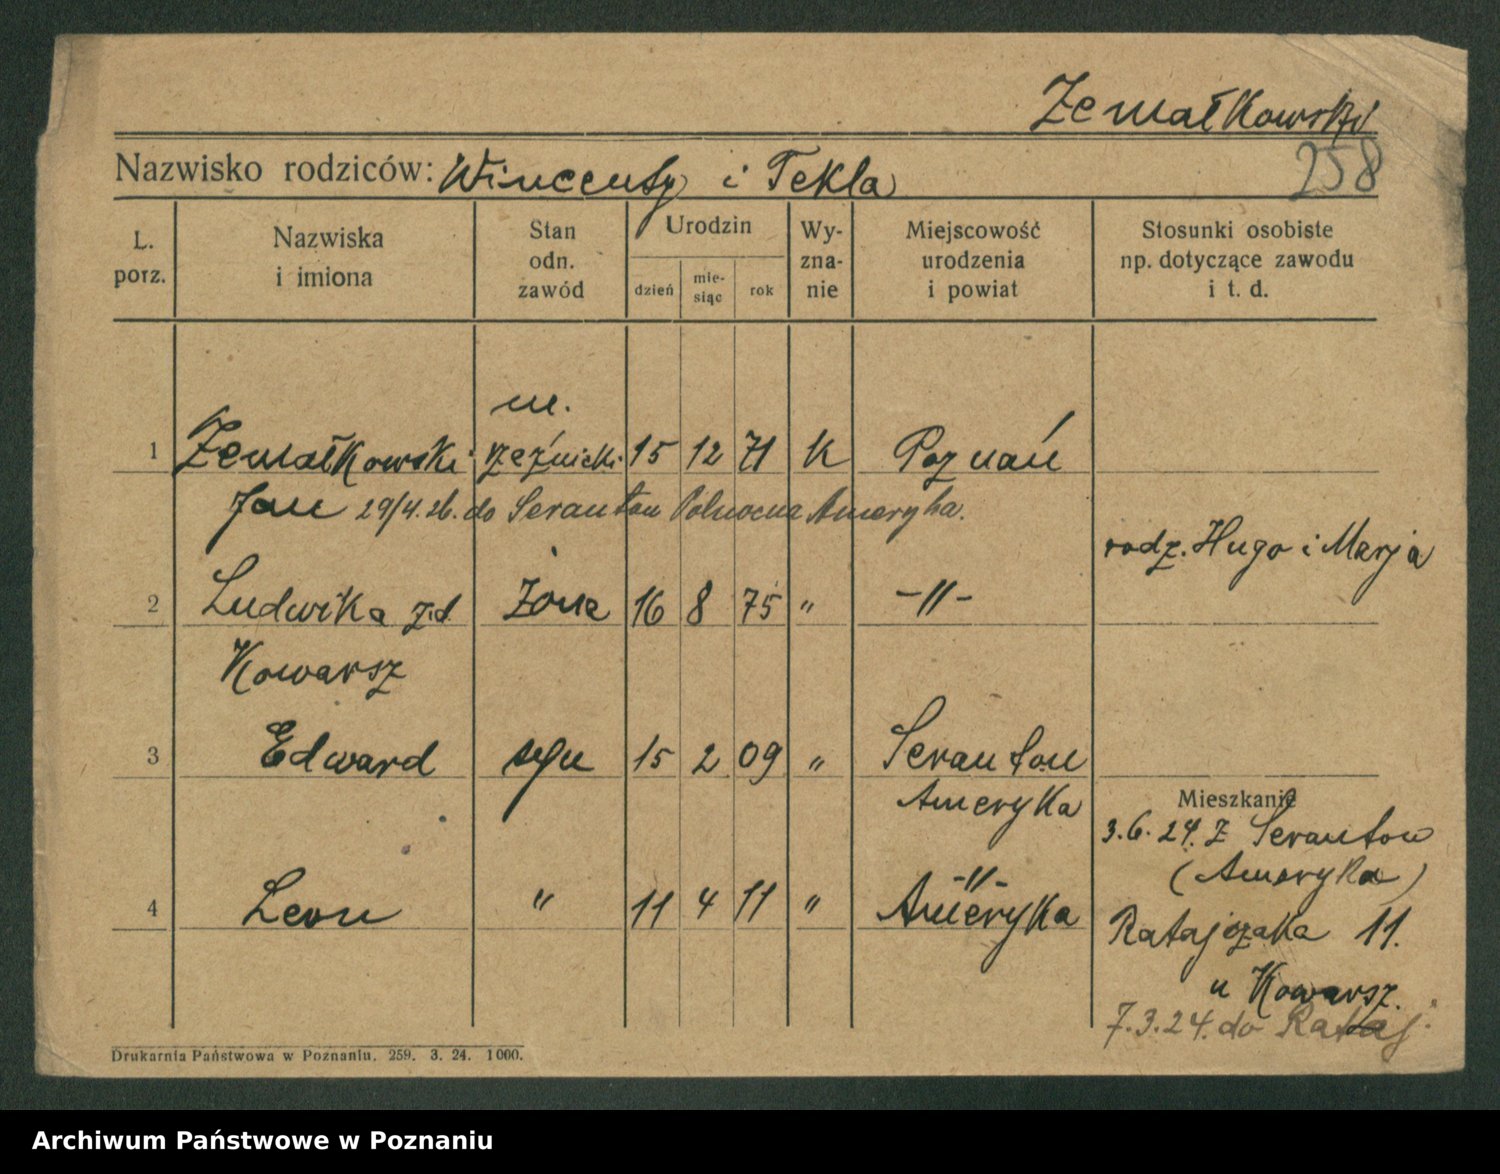 Zemałkowski
258
Nazwisko rodziców: Wincenty i Tekla
L. porz.
Nazwiska i imiona
Stan odn. zawód
Urodzin
dzień
mie-siąc
rok
Wy-zna-nie
Miejscowość urodzenia i powiat
Stosunki osobiste np. dotyczące zawodu i t. d.
m.
1 Zemałkowski rzeźnicki 15 12 71 K Poznań
Jan 29/4.26. do Scranton Północna Ameryka.
rodz. Hugo i Marja
2 Ludwika zd. żona 16 8 75 " -"-
Kowarsz
3 Edward syn 15 2 09 " Scranton
Ameryka
Mieszkanie
3.6.24. z Scranton
(Ameryka)
-"-
4 Leon " 11 4 11 " Ameryka
Ratajczaka 11.
u Kowarsz.
7.3.24. do Rataj.
Drukarnia Państwowa w Poznaniu. 259. 3. 24. 1000.
Archiwum Państwowe w Poznaniu